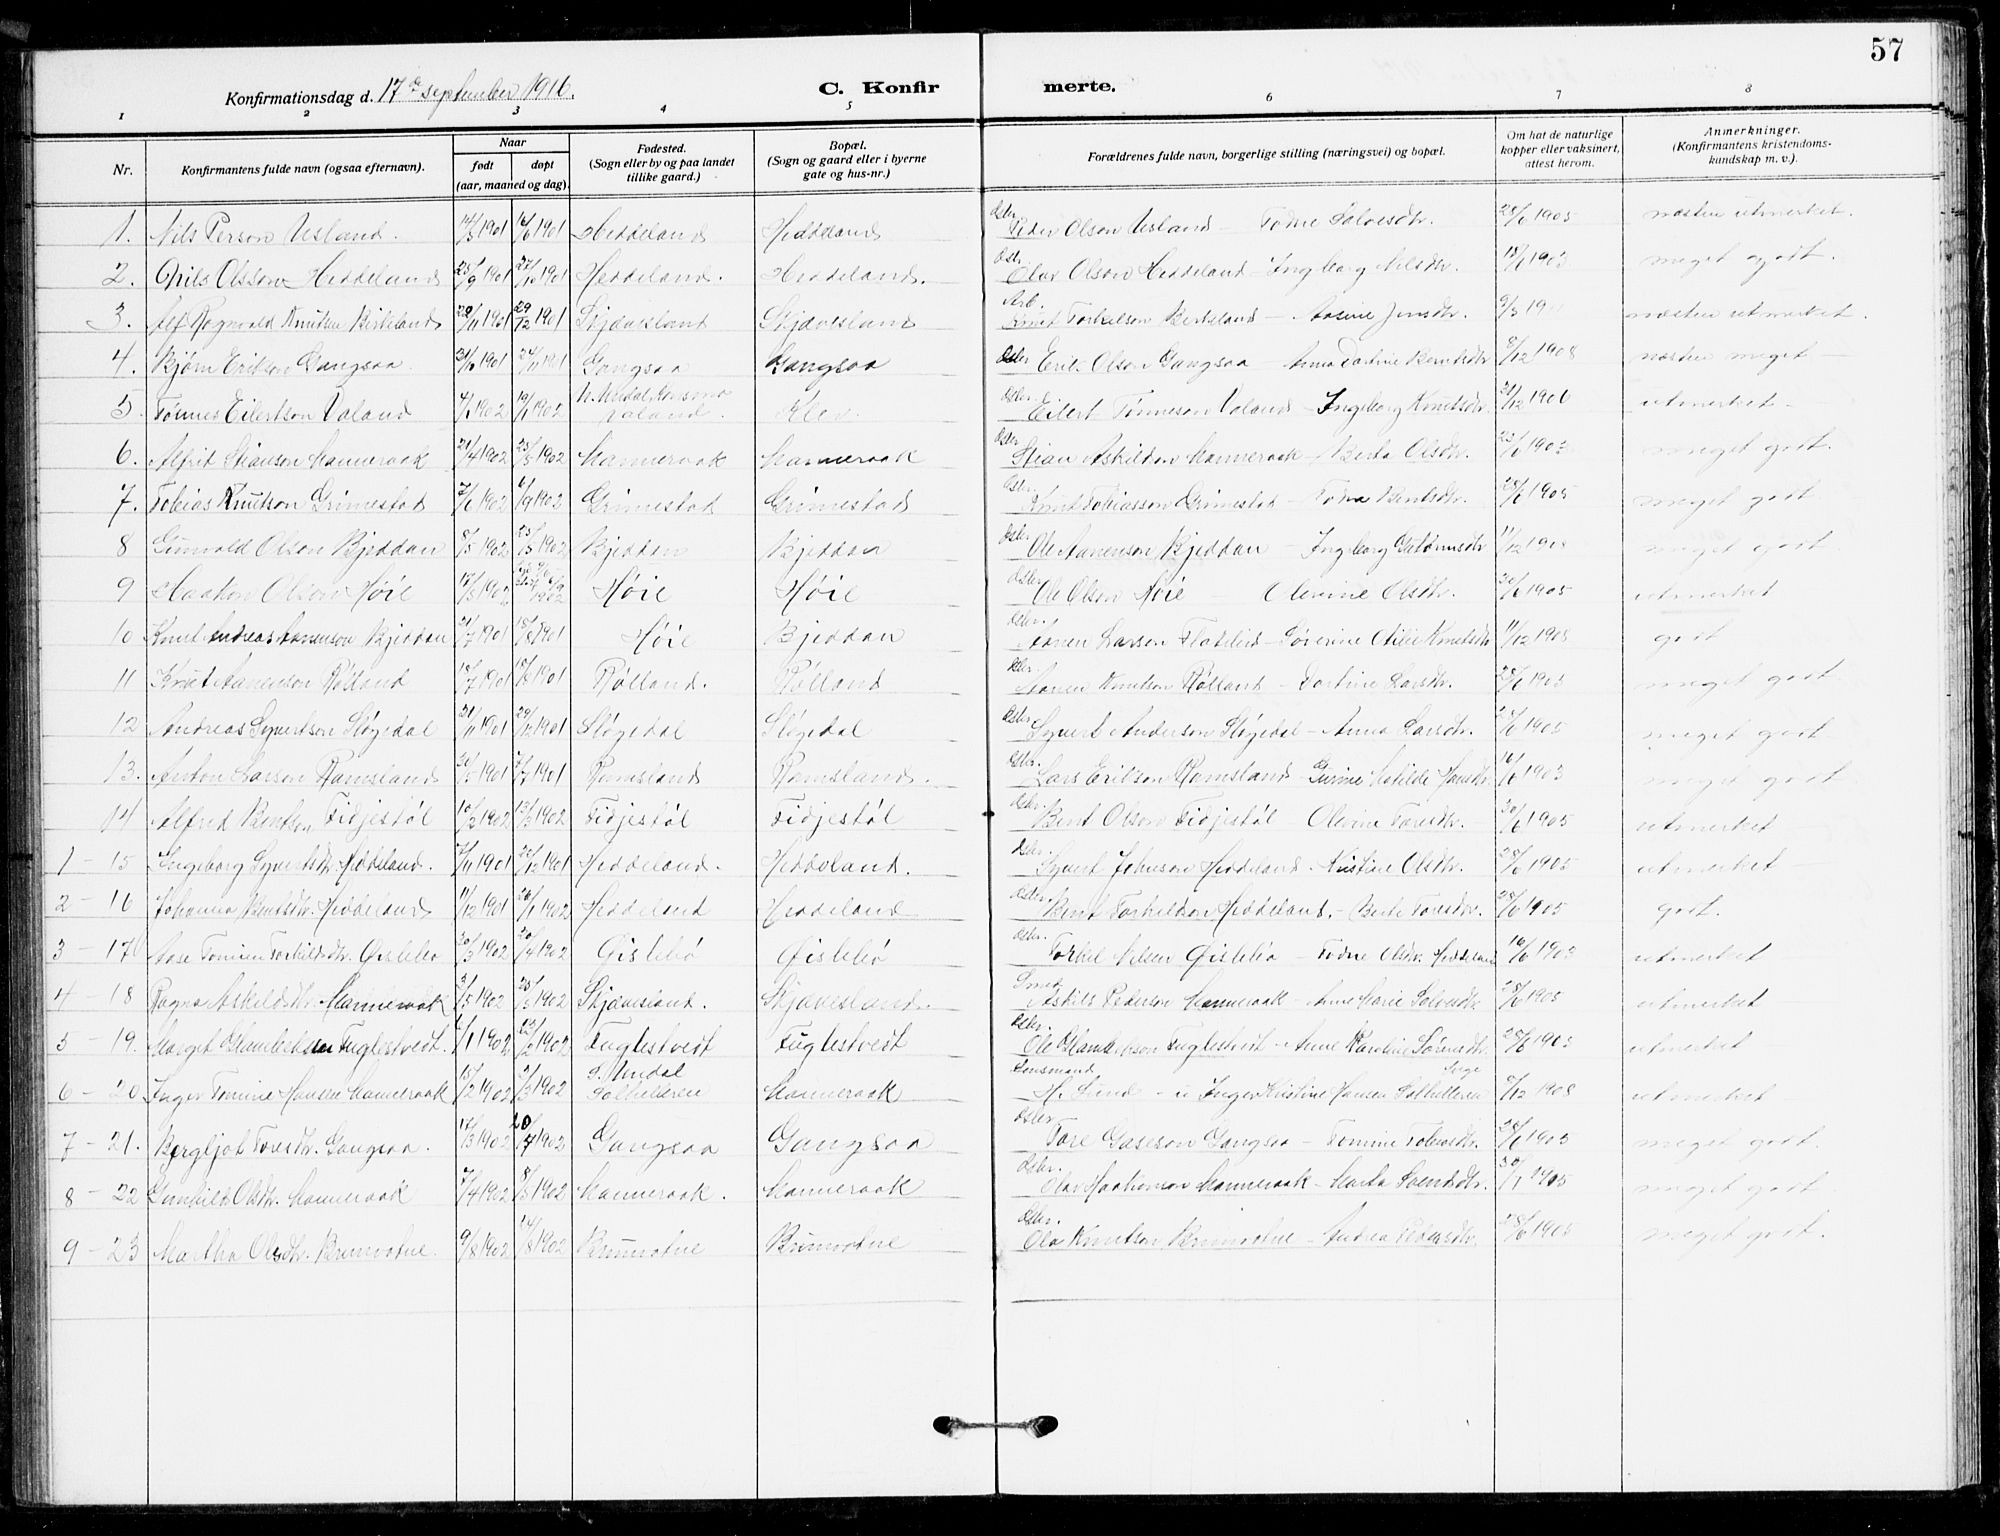 57
Konfirmationsdag d. 17de september 1916.
C. Konfirmerte.
1 2 3 4 5 6 7 8
Nr. Konfirmantens fulde navn (ogsaa efternavn). Naar født døpt (aar, maaned og dag). Fødested. (Sogn eller by og paa landet tillike gaard.) Bopæl. (Sogn og gaard eller i byerne gate og hus-nr.) Forældrenes fulde navn, borgerlige stilling (næringsvei) og bopæl. Om hat de naturlige kopper eller vaksinert, attest herom. Anmerkninger. (Konfirmantens kristendomskundskap m. v.).
1. Nils Person Usland. 14/5 1901 16/6 1901 Heddeland Heddeland Peder Olson Usland – Todne Salvesdtr. 28/6 1905 næsten utmerket.
2. Nils Olsson Heddeland 25/9 1901 27/10 1901 Heddeland. Heddeland. Olav Olson Heddeland – Ingeborg Nilsdtr. 18/6 1903 meget godt.
3. Alf Ragnvald Knutsen Birkeland 22/11 1901 29/12 1901 Skjævesland Skjævesland Arb. Knut Torkelson Birkeland – Aasine Jensdtr. 9/3 19 næsten utmerket.
4. Bjørn Erikson Gangsaa. 31/10 1901 24/11 1901 Gangsaa Gangsaa Erik Olson Gangsaa – Anna Dortine Berntsdtr 8/12 1908 næsten meget –
5. Tønnes Eilertson Valand 4/1 1902 19/1 1902 N. Undal Valand Klev Eilert Tønneson Valand – Ingeborg Knutsdtr. 31/12 1906 utmerket –
6. Alfrit Stianson Manneraak 21/4 1902 25/5 1902 Manneraak Manneraak Stian Askildson Manneraak – Berta Olsdtr. 25/6 1903 meget godt.
7. Tobias Knutson Grimestad 7/6 1902 6/9 1902 Grimestad Grimestad Knut Tobiasson Grimestad – Tona Bentsdtr. 28/6 1905 meget godt
8 Gunvald Olson Bjeddan 8/5 1902 25/5 1902 Bjeddan Bjeddan Ole Aanenson Bjeddan – Ingeborg 11/12 1908 meget godt
9 Haakon Olson Høie 17/5 1902 Høie Høie Ole Olson Høie – Olevine Olsdtr. 30/6 1905 utmerket
10 Knut Andreas Aanenson Bjeddan 21/7 1901 18/8 1901 Høie Bjeddan Aanen Larson Flatelid – Severine Otilie Knutsdtr 11/12 1908 godt
11 Knut Aanenson Røiland 18/7 1901 18/8 1901 Røiland. Røiland Aanen Knutson Røiland – Dortine Larsdtr. 28/6 1905 meget godt.
12 Andreas Syvertson Sløgedal 21/11 1901 29/12 1901 Sløgedal Sløgedal Syvert Anderson Sløgedal – Anna Larsdtr. 28/6 1905 meget godt
13. Anton Larson Ramsland 26/5 1901 7/7 1901 Ramsland Ramsland. Lars Erikson Ramsland – Gurine Matilde Hansdtr 16/6 1903 meget godt
14 Alfred Bentsen Fidjestøl 10/2 1902 13/3 1902 Fidjestøl Fidjestøl Bent Olson Fidjestøl – Olevine Toresdtr. 30/6 1905 utmerket
1 – 15 Ingeborg Syvertsdtr. Heddeland. 7/11 1901 25/12 1901 Heddeland. Heddeland. Syvert Johnson Heddeland – Kristine Olsdtr. 28/6 1905 utmerket –
2 – 16 Johanna Bentsdtr. Heddeland 11/12 1901 26/1 1902 Heddeland Heddeland Bent Torkelson Heddeland. – Berte Toresdtr. 28/6 1905 godt.
3 – 17 Aase Tomine Torkildsdtr. Øislebø 30/3 1902 20/4 1902 Øislebø Øislebø Torkel Nilsen Øislebø – Todne Olsdtr. Heddeland 16/6 1903 utmerket
4 – 18 Ragna Askildsdtr. Manneraak 3/5 1902 25/5 1902 Skjævesland. Skjævesland. Smed Askild Pederson Manneraak – Anne Marie Salvesdtr 28/6 1905 utmerket
5 – 19. Marget Fuglestvedt. 6/1 1902 23/2 1902 Fuglestvedt Fuglestvedt Ole Fuglestvedt – Anne Karoline Sørensdtr. 25/6 1903 utmerket
6 – 20 Inger Tomine Hansen Manneraak 15/2 1902 31/3 1902 S. Undal Solhelleren Manneraak Lensmand H. Lund – u Inger Kristine Hansen Solhelleren 8/12 1908 utmerket –
7 – 21. Bergljot Toresdtr. Gangsaa. 17/3 1902 20/4 1902 Gangsaa Gangsaa Tore Gaseson Gangsaa – Tomine Tobiasdtr 28/6 1905 meget godt.
8 – 22 Gunhild Olsdtr. Manneraak 7/4 1902 8/5 1902 Manneraak. Manneraak Olav Haakonson Manneraak – Marta Svensdtr. 30/1 1905 meget godt –
9 – 23 Martha Olsdtr. Brunvatne. 9/8 1902 24/8 1902 Brunvatne Brunvatne Ola Knutson Brunvatne – Andrea Pedersdtr. 28/6 1905 meget godt.